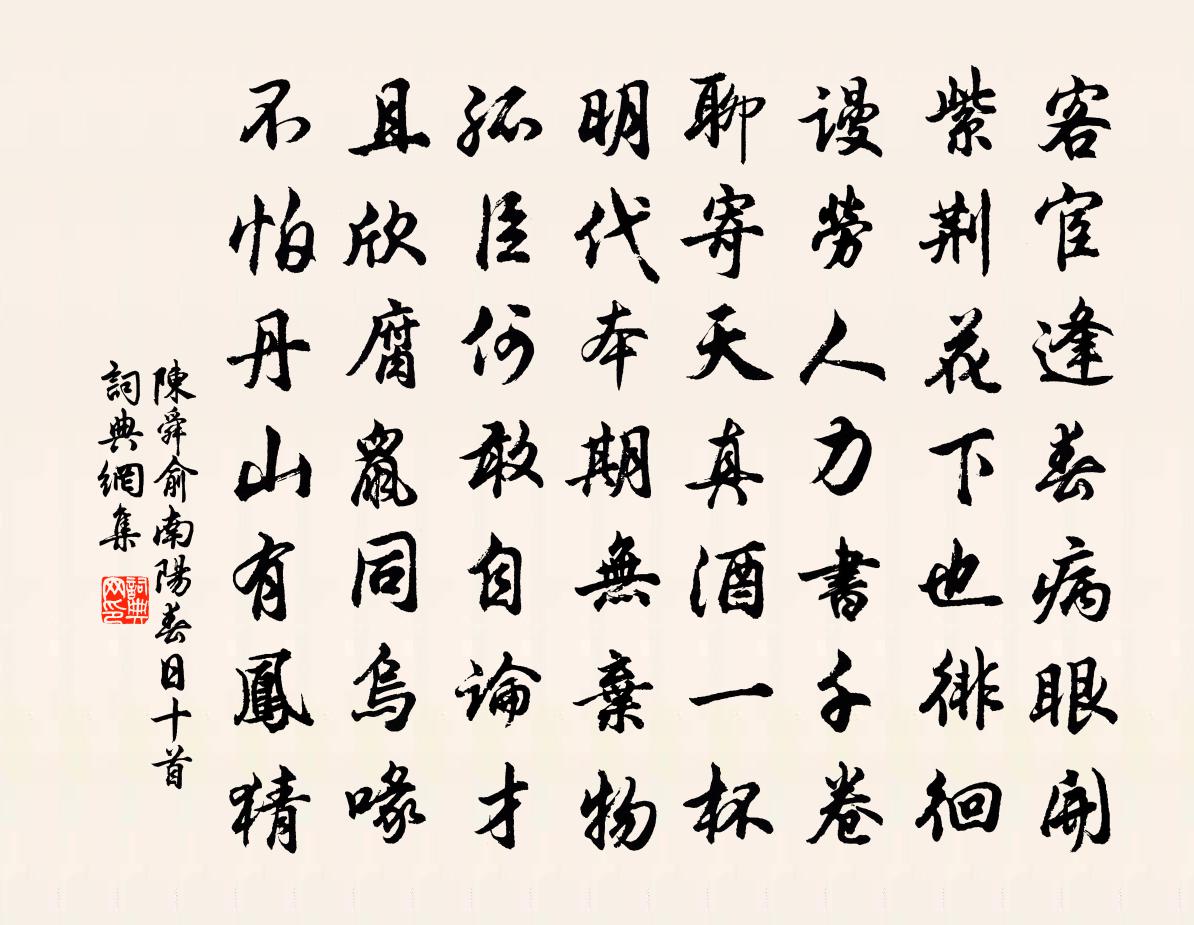 客宦逢春病眼開
紫荆花下也徘徊
謾勞人力書千卷
聊寄天真酒一杯
明代本期無棄物
孤臣何敢自論才
且欣腐鼠同烏喙
不怕丹山有鳳猜
陳舜俞南陽春日十首
詞典網集
詞典网印